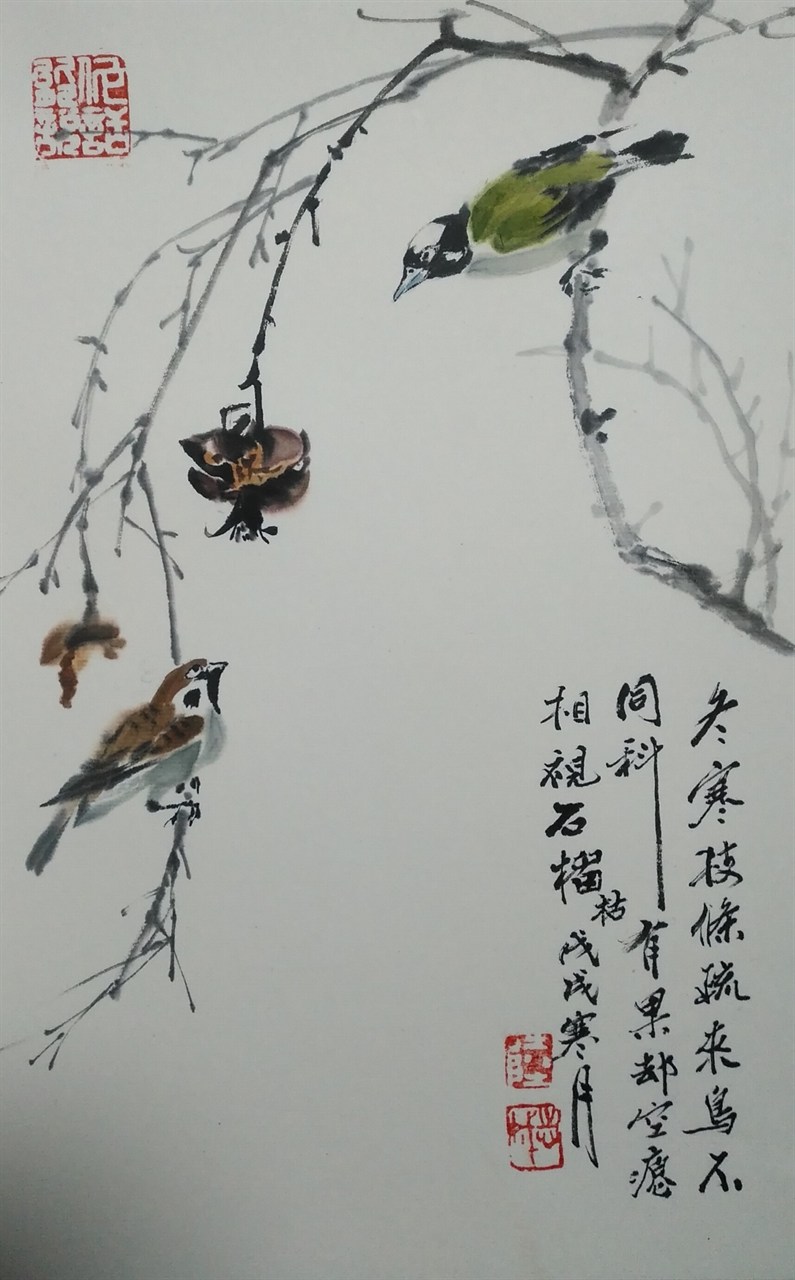 冬寒枝條疏来鳥不
同科有果却空癟
相視石榴枯戊戌寒月